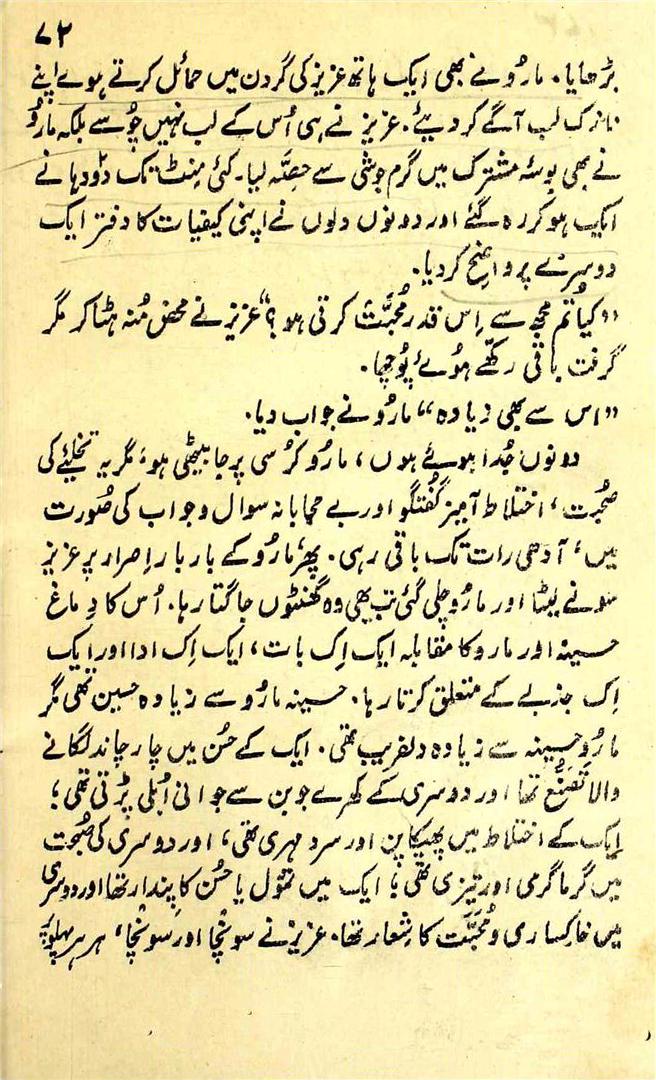 ۷۲
بڑھایا۔ مارُو نے بھی ایک ہاتھ عزیز کی گردن میں حمائل کرتے ہوے اپنے
نازک لب آگے کر دیئے۔ عزیز نے ہی اُس کے لب نہیں چُوسے بلکہ مارُو
نے بھی بوسۂ مشترک میں گرم جوشی سے حصّہ لیا۔ کئی مِنٹ تک دُو دہانے
ایک ہو کر رہ گئے اور دونوں دلوں نے اپنی کیفیات کا دفتر ایک
دوسرے پر واضح کر دیا۔
”کیا تُم مجھ سے اِس قدر مُحبّت کرتی ہو؟“ عزیز نے محض مُنہ ہٹا کر مگر
گرفت باقی رکھّے ہُوئے پُوچھا۔
”اس سے بھی زیادہ“ مارُو نے جواب دیا۔
دونوں جُدا ہوئے ہوں، مارُو کُرسی پر جا بیٹھی ہو؛ مگر یہ تخلیئے کی
صُحبت، اختلاط آمیز گُفتگو اور بے محابانہ سوال و جواب کی صُورت
میں، آدھی رات تک باقی رہی۔ پھر مارُو کے بار بار اِصرار پر عزیز
سونے لیٹا اور مارُو چلی گئی تب بھی وہ گھنٹوں جاگتا رہا۔ اُس کا دِماغ
حسینہ اور مارو کا مقابلہ ایک اِک بات، ایک اِک ادا اور ایک
اِک جذبے کے متعلق کرتا رہا۔ حسینہ مارُو سے زیادہ حسین تھی مگر
مارُو حسینہ سے زیادہ دلفریب تھی۔ ایک کے حُسن میں چار چاند لگانے
والا تصنُّع تھا اور دوسری کے کھرے جوبن سے جوانی اُبلی پڑتی تھی؛
ایک کے اختلاط میں پھیکا پن اور سرد مہری تھی، اور دوسری کی صُحبت
میں گرما گرمی اور تیزی تھی؛ ایک میں تموّل یا حُسن کا پِندار تھا اور دوسری
میں خاکساری و مُحبّت کا شِعار تھا۔ عزیز نے سونچا اور سونچا، ہر ہر پہلو پہ